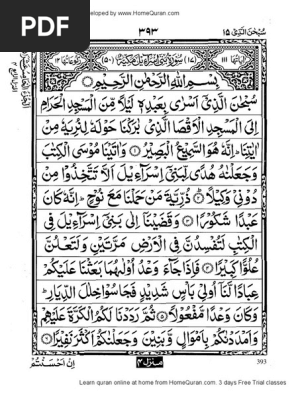 PDF
eloped by www.HomeQuran.com
سُبْحٰنَ الَّذِیْۤ ١٥
٣٩٣
اٰیاتها ١١١ (١٧) سُوْرَةُ بَنِیْۤ اِسْرَآءِیْلَ مَكِّیَّةٌ (٥٠) رکوعاتها ١٢
بِسْمِ اللهِ الرَّحْمٰنِ الرَّحِیْمِ
سُبْحٰنَ الَّذِیْۤ اَسْرٰی بِعَبْدِهٖ لَیْلًا مِّنَ الْمَسْجِدِ الْحَرَامِ
اِلَی الْمَسْجِدِ الْاَقْصَا الَّذِیْ بٰرَكْنَا حَوْلَهٗ لِنُرِیَهٗ مِنْ
اٰیٰتِنَا ؕ اِنَّهٗ هُوَ السَّمِیْعُ الْبَصِیْرُ ۝ وَاٰتَیْنَا مُوْسَی الْكِتٰبَ
وَجَعَلْنٰهُ هُدًی لِّبَنِیْۤ اِسْرَآءِیْلَ اَلَّا تَتَّخِذُوْا مِنْ
دُوْنِیْ وَكِیْلًا ۝ ذُرِّیَّةَ مَنْ حَمَلْنَا مَعَ نُوْحٍ ؕ اِنَّهٗ كَانَ
عَبْدًا شَكُوْرًا ۝ وَقَضَیْنَاۤ اِلٰی بَنِیْۤ اِسْرَآءِیْلَ فِی
الْكِتٰبِ لَتُفْسِدُنَّ فِی الْاَرْضِ مَرَّتَیْنِ وَلَتَعْلُنَّ
عُلُوًّا كَبِیْرًا ۝ فَاِذَا جَآءَ وَعْدُ اُوْلٰىهُمَا بَعَثْنَا عَلَیْكُمْ
عِبَادًا لَّنَاۤ اُولِیْ بَاْسٍ شَدِیْدٍ فَجَاسُوْا خِلٰلَ الدِّیَارِ ؕ
وَكَانَ وَعْدًا مَّفْعُوْلًا ۝ ثُمَّ رَدَدْنَا لَكُمُ الْكَرَّةَ عَلَیْهِمْ
وَاَمْدَدْنٰكُمْ بِاَمْوَالٍ وَّبَنِیْنَ وَجَعَلْنٰكُمْ اَكْثَرَ نَفِیْرًا ۝
اِنْ اَحْسَنْتُمْ
منزل ٤
393
Learn quran online at home from HomeQuran.com. 3 days Free Trial classes